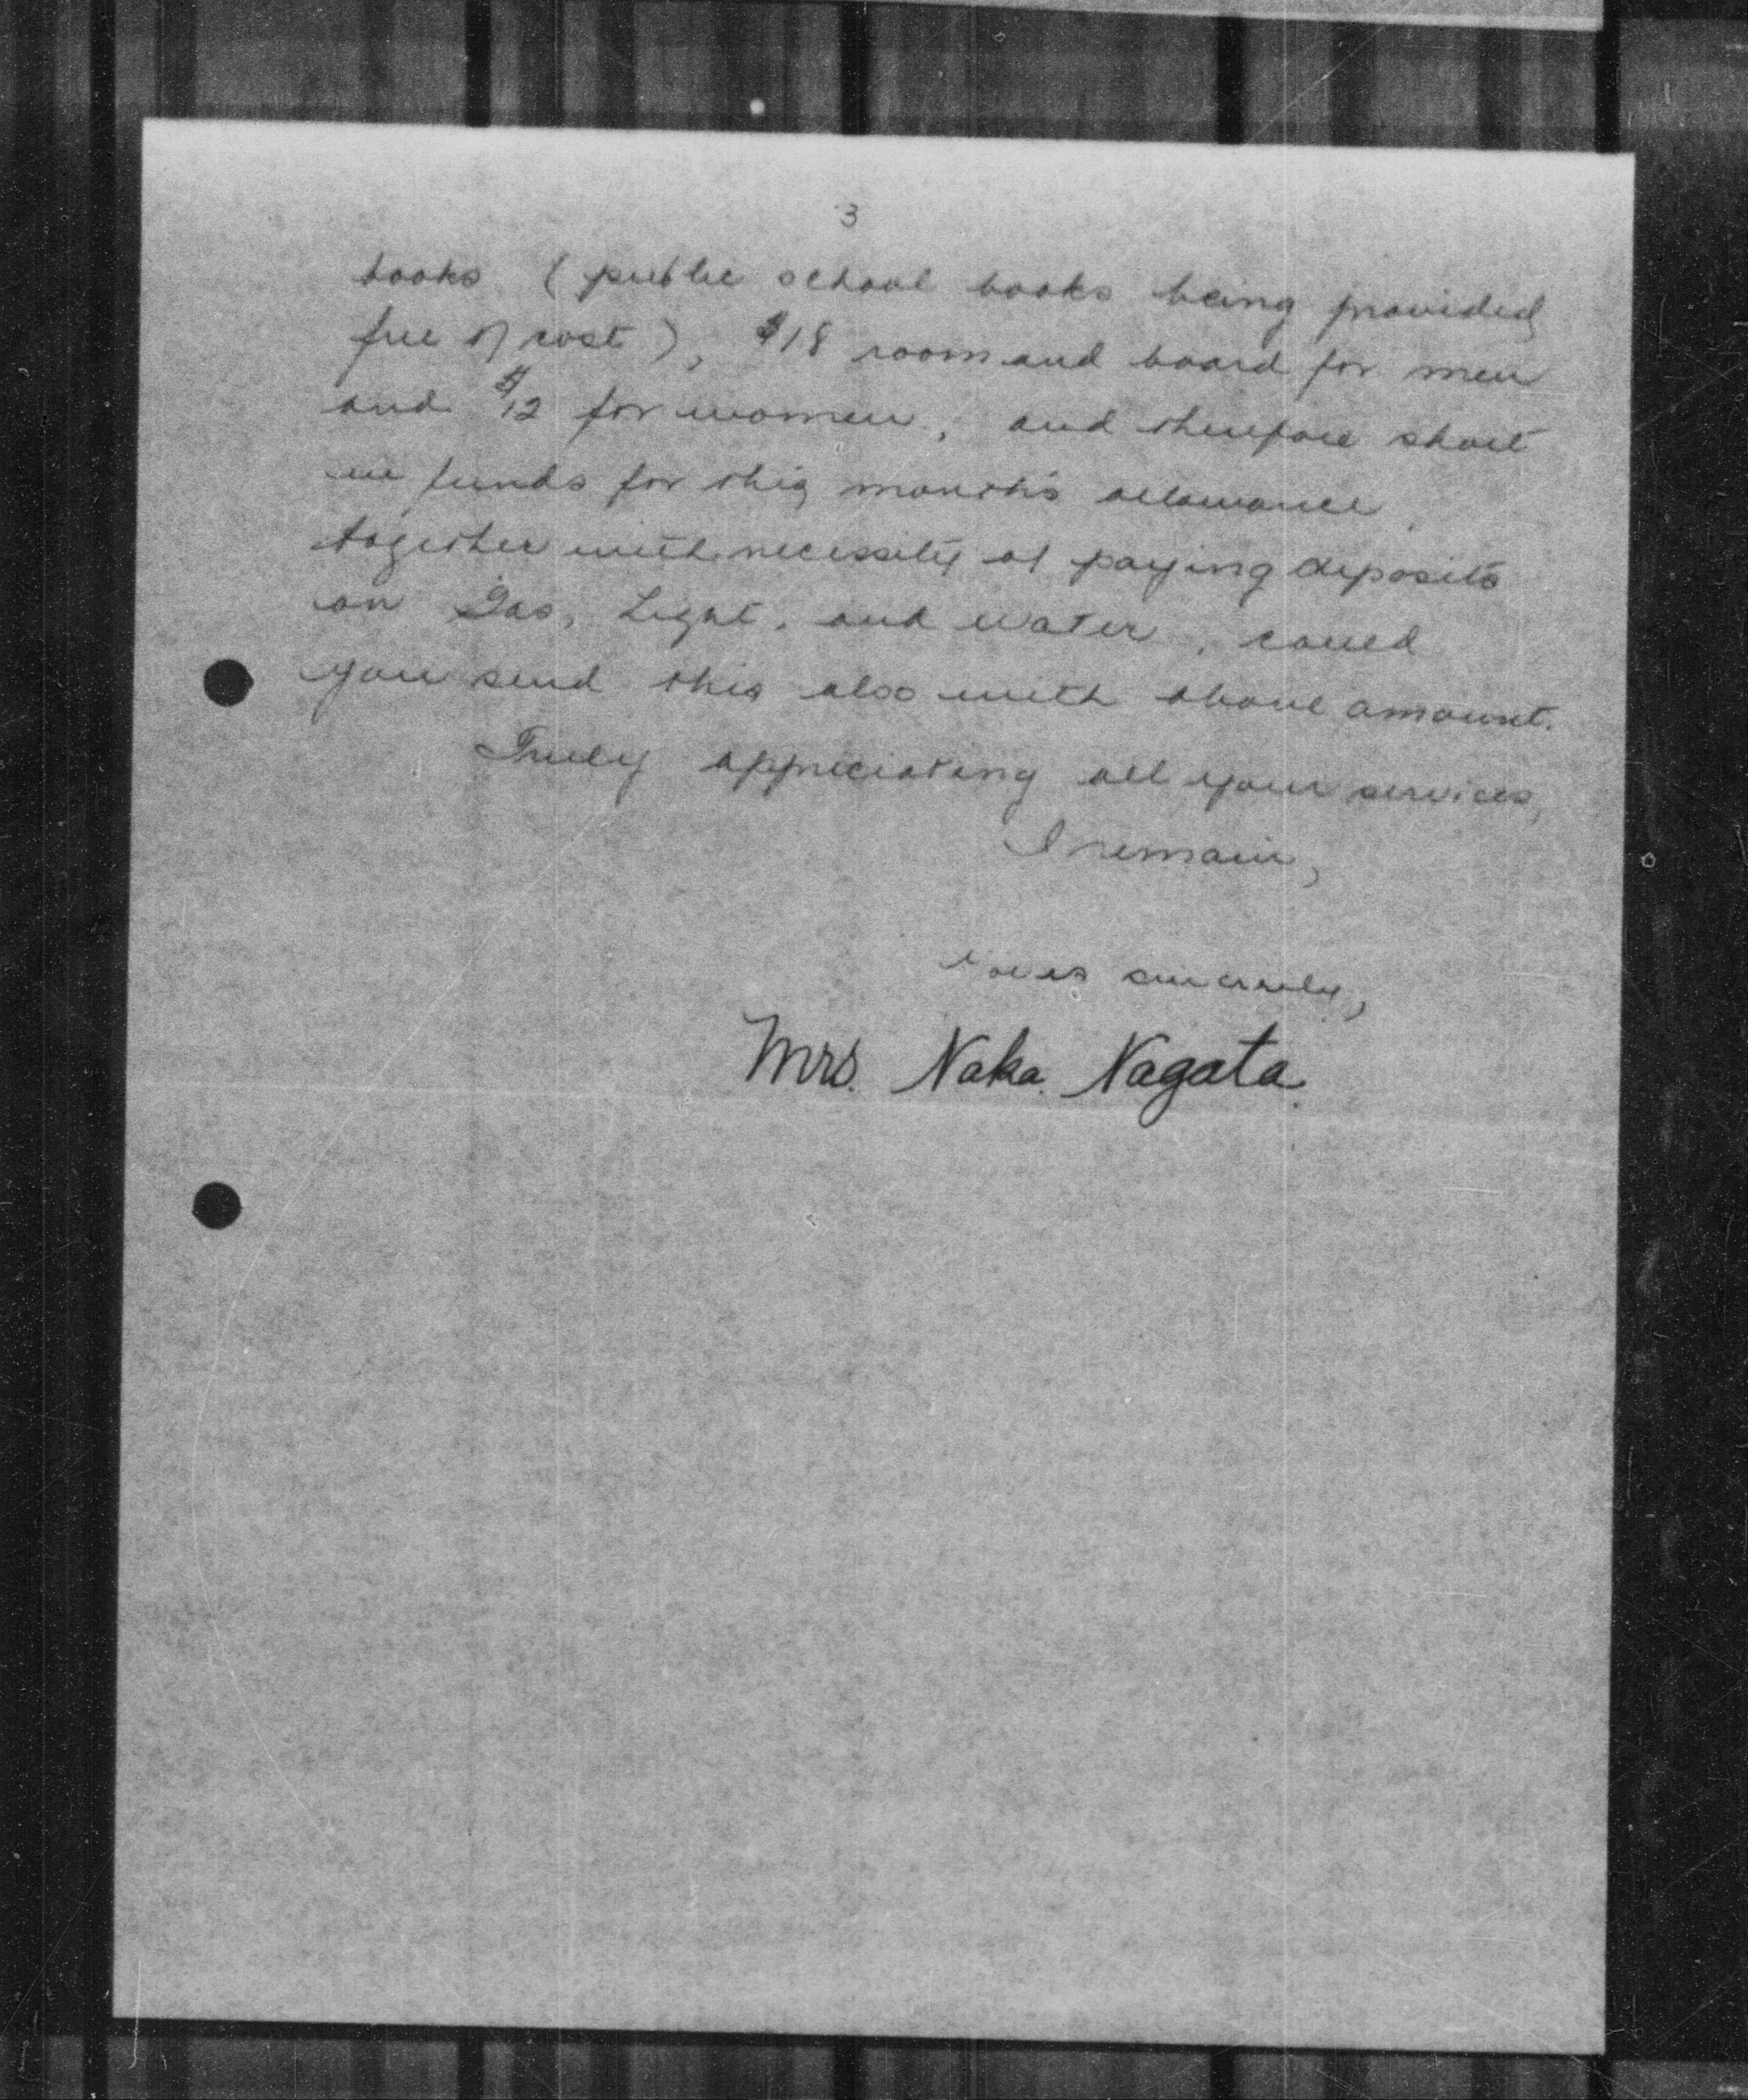 3
books (public school books being provided
free of cost), $18 room and board for men
and $12 for women, and therefore short
in funds for this month's allowance,
together with necessity of paying deposits
on Gas, Light, and water, could
you send this also with above amount.
Truly appreciating all your services,
I remain,
Yours sincerely,
Mrs. Naka Nagata.